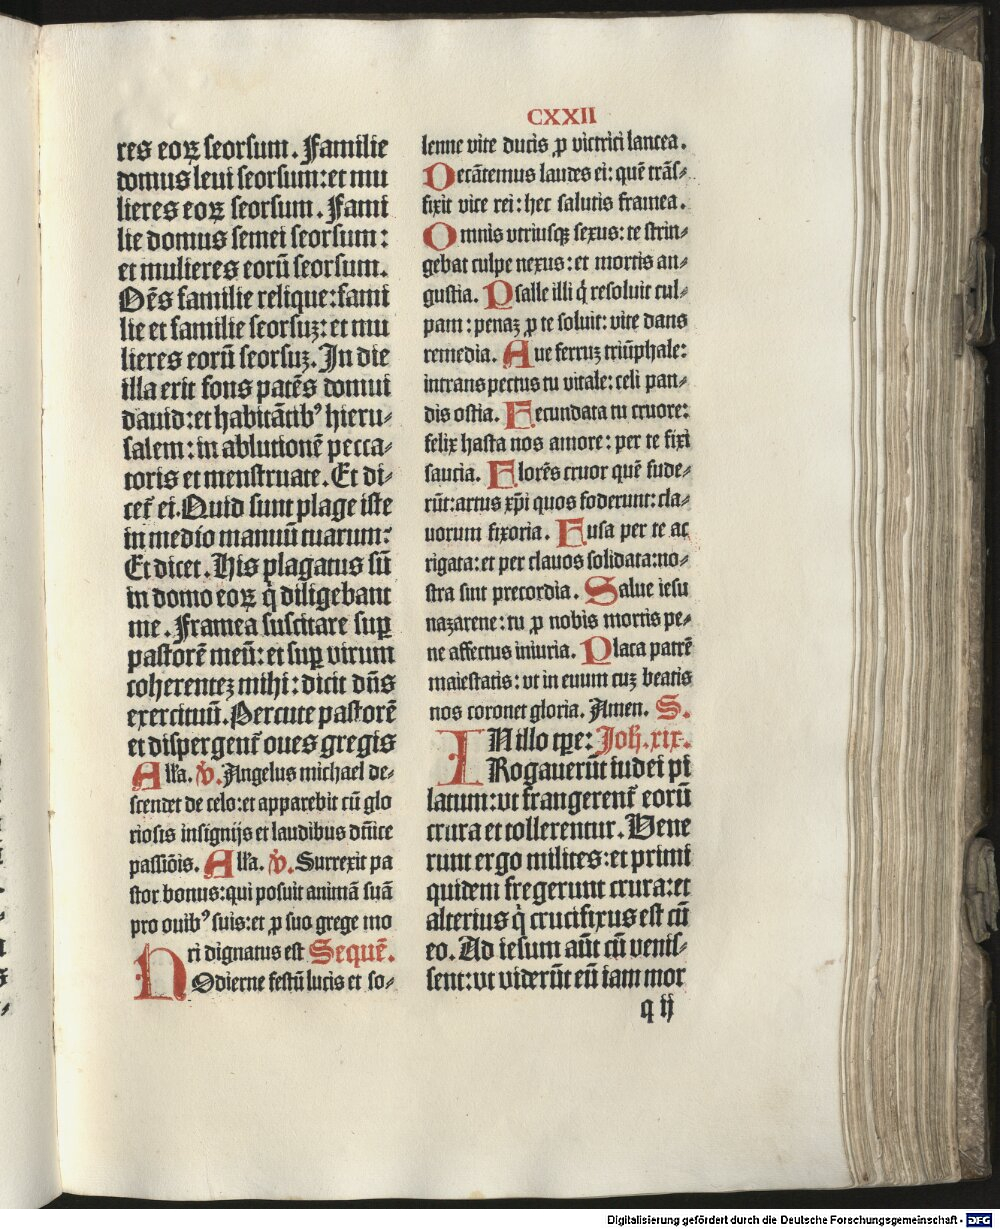 CXXII
res eoꝝ seorsum. Familie
domus leui seorsum: et mu
lieres eoꝝ seorsum. Fami
lie domus semei seorsum:
et mulieres eorū seorsum.
Oēs familie relique: fami
lie et familie seorsuꝫ: et mu
lieres eorū seorsuꝫ. In die
illa erit fons patēs domui
dauid: et habitātibꝰ hieru-
salem: in ablutionē pecca-
toris et menstruate. Et di-
cet᷑ ei. Quid sunt plage iste
in medio manuū tuarum:
Et dicet. His plagatus sū
in domo eoꝝ q̇ diligebant
me. Framea suscitare suꝑ
pastorē meū: et suꝑ virum
coherenteꝫ mihi: dicit dn̄s
exercituū. Percute pastorē
et dispergent᷑ oues gregis
All'a. ꝟ. Angelus michael de-
scendet de celo: et apparebit cū glo
riosis insignijs et laudibus dn̄ice
passiōis. All'a. ꝟ. Surrexit pa
stor bonus: qui posuit animā suā
pro ouibꝰ suis: et ꝓ suo grege mo
ri dignatus est Sequē.
HOdierne festū lucis et so-
lenne vite ducis ꝓ victrici lancea.
Decātemus laudes ei: quē trās-
fixit vice rei: hec salutis framea.
Omnis vtriusqꝫ sexus: te strin-
gebat culpe nexus: et mortis an-
gustia. Psalle illi q̇ resoluit cul-
pam: penaꝫ ꝑ te soluit: vite dans
remedia. Aue ferruꝫ triūphale:
intrans pectus tu vitale: celi pan-
dis ostia. Fecundata tu cruore:
felix hasta nos amore: per te fixi
saucia. Florēs cruor quē fude-
rūt: artus xp̄i quos foderunt: cla-
uorum fixoria. Fusa per te ac
rigata: et per clauos solidata: no-
stra sint precordia. Salue iesu
nazarene: tu ꝓ nobis mortis pe-
ne affectus iniuria. Placa patrē
maiestatis: vt in euum cuꝫ beatis
nos coronet gloria. Amen. S.
IN illo tꝑe: Joh. xix.
Rogauerūt iudei pi
latum: vt frangerent᷑ eorū
crura et tollerentur. Vene
runt ergo milites: et primi
quidem fregerunt crura: et
alterius q̇ crucifixus est cū
eo. Ad iesum aūt cū venis-
sent: vt viderūt eū iam mor
q ij
Digitalisierung gefördert durch die Deutsche Forschungsgemeinschaft - DFG